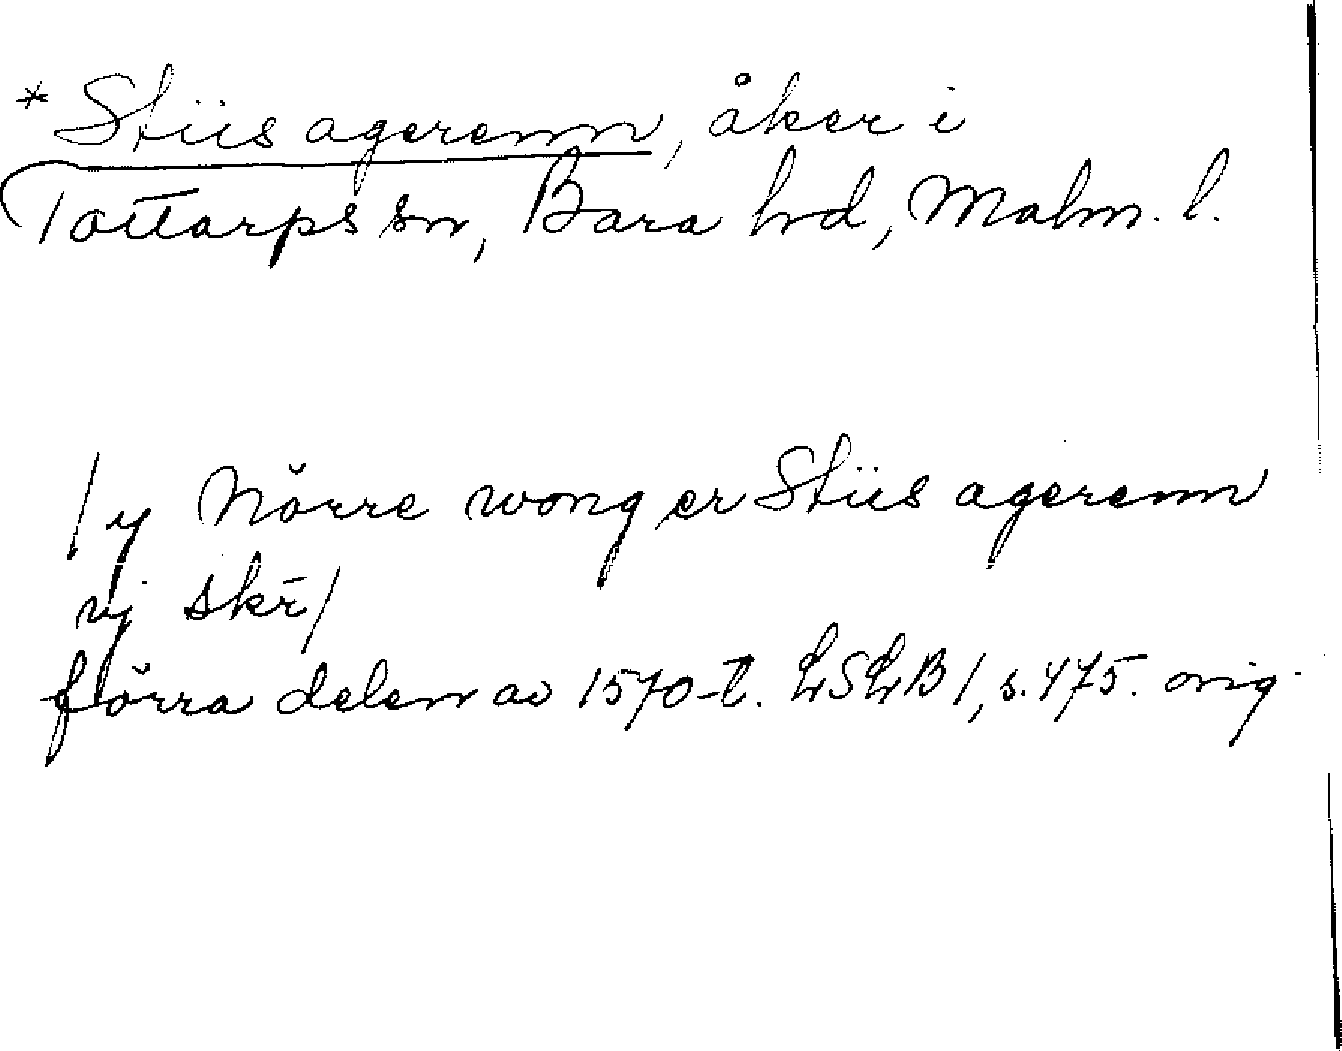 * Stiis agerenn, åker i
Tottarps sn, Bara hd, Malm. l.
/ y Nörre wong er Stiis agerenn
vj skr̄ /
förra delen av 1570-t. LSLB 1, s. 475. orig.